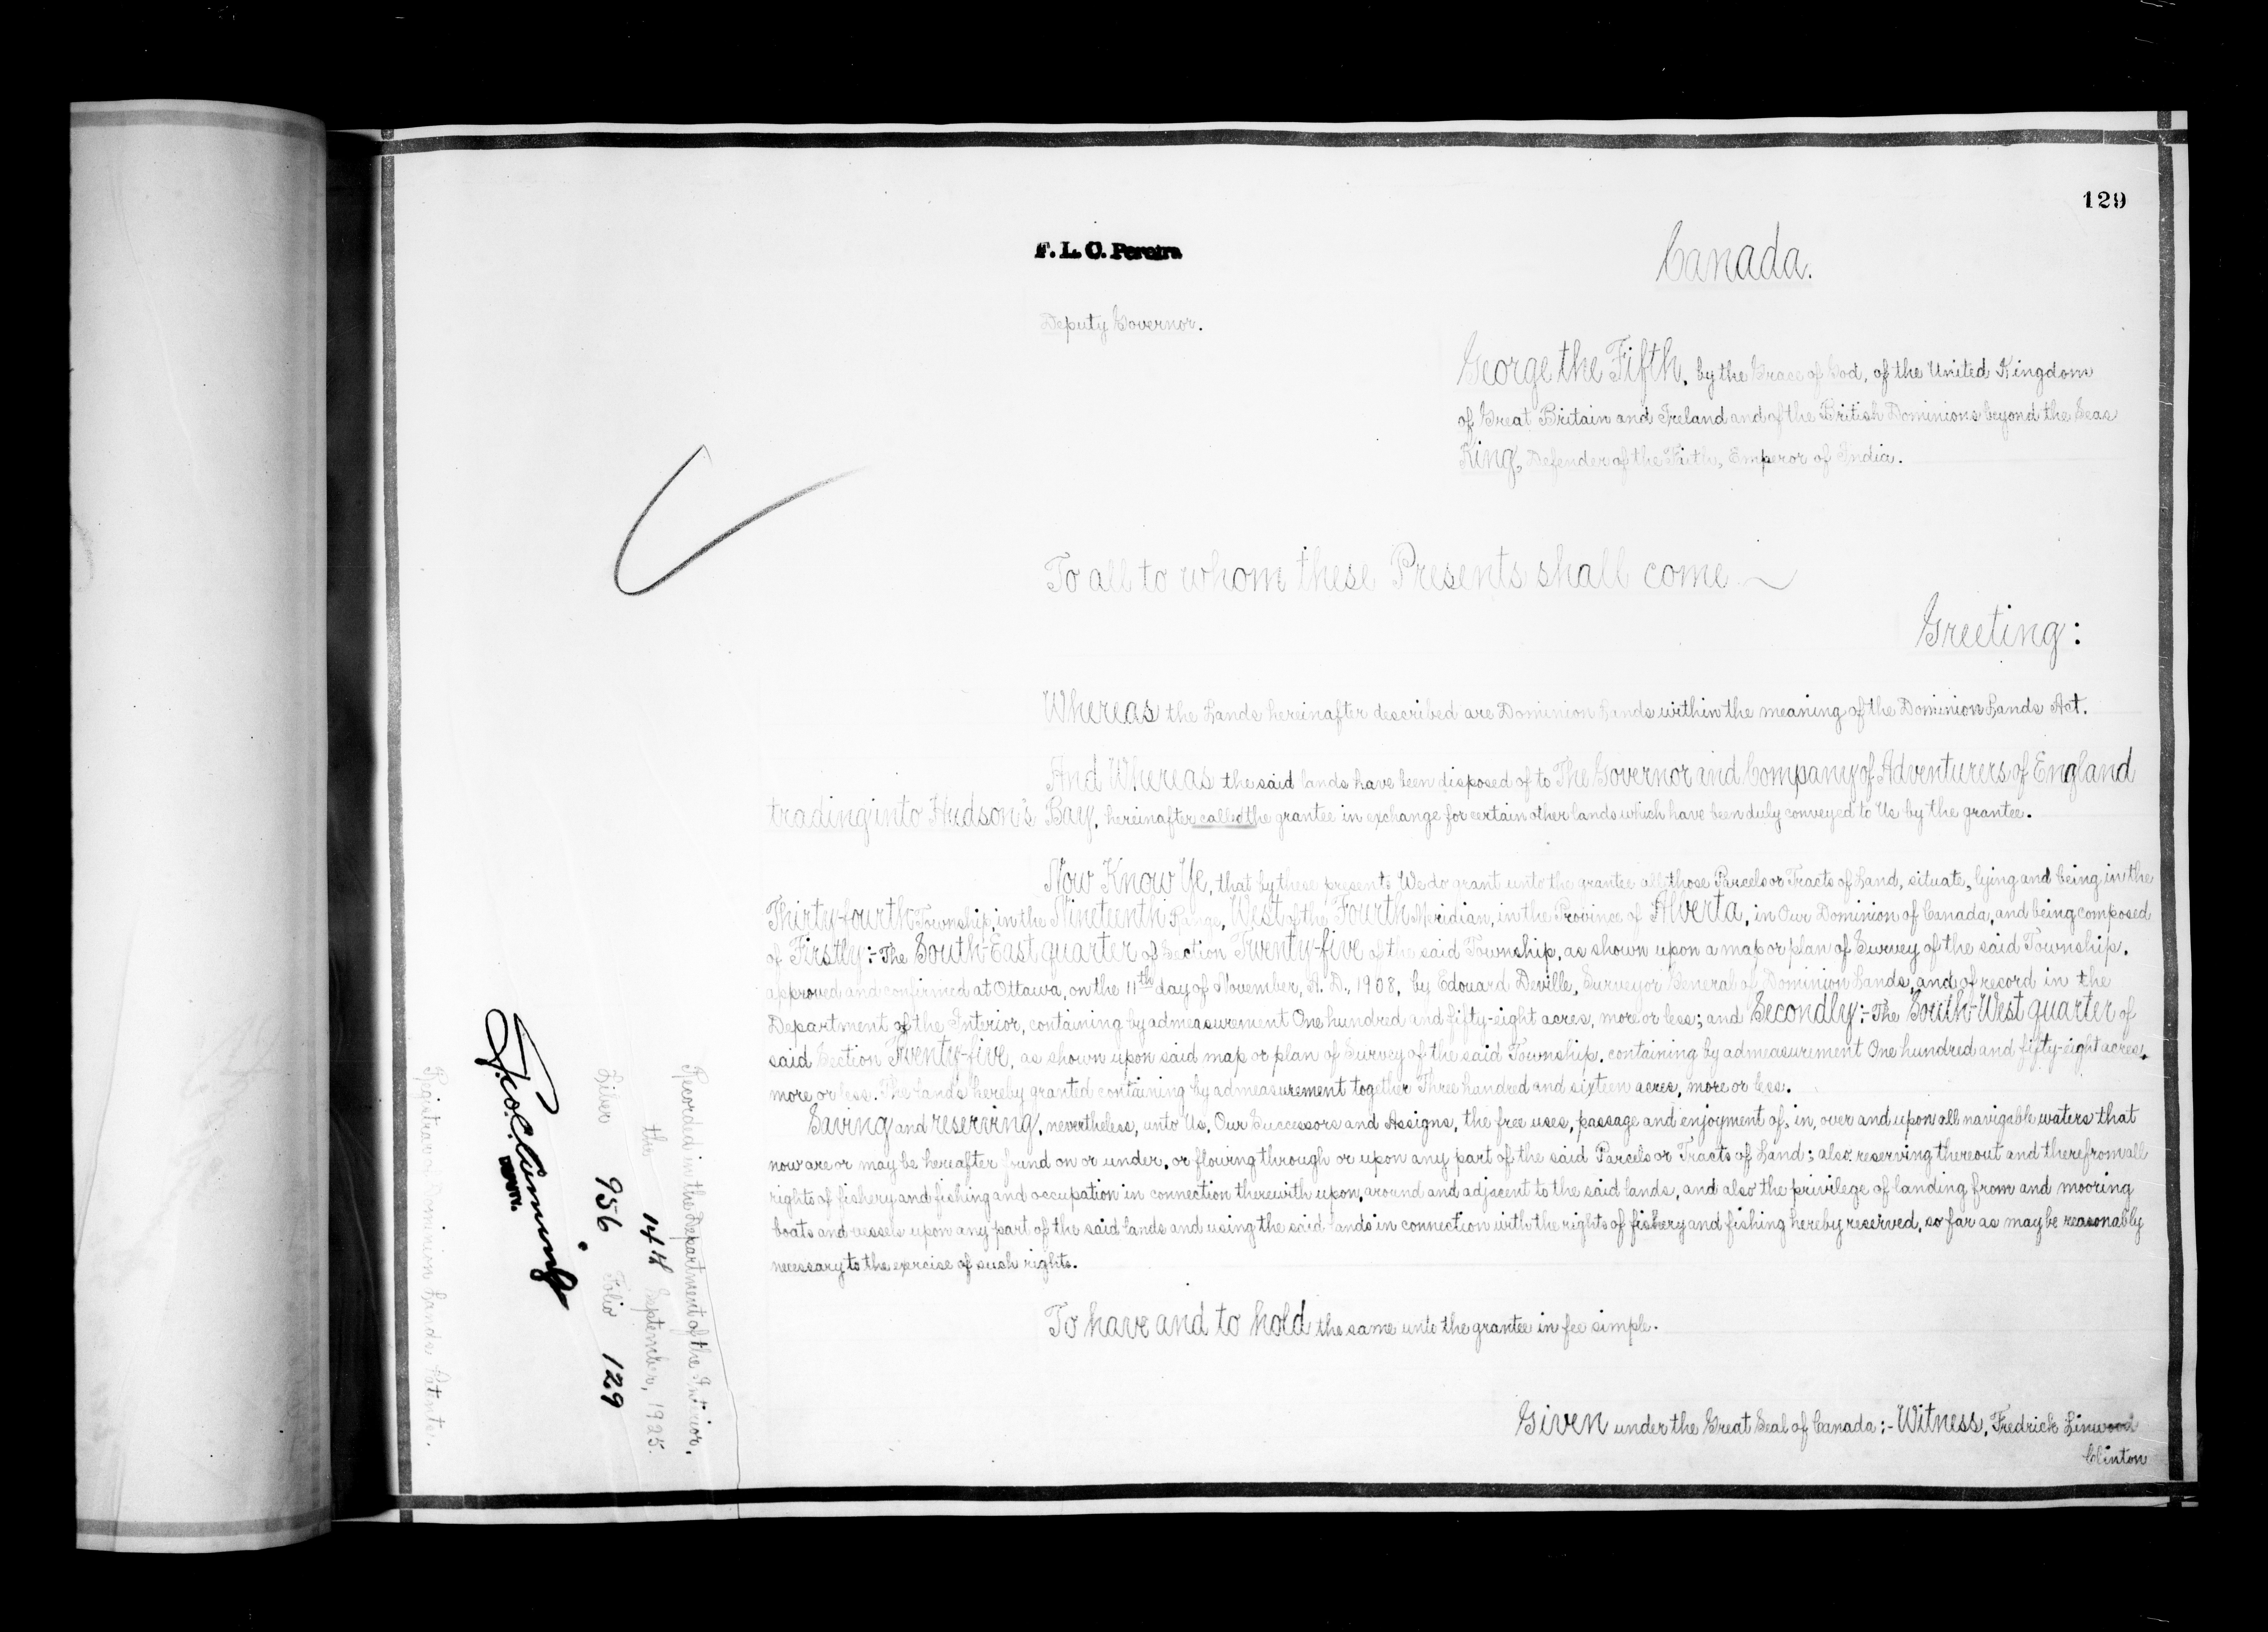 129
F. L. C. Pereira
Canada.
Deputy Governor.
George the Fifth, by the Grace of God, of the United Kingdom
of Great Britain and Ireland and of the British Dominions beyond the Seas
King, Defender of the Faith, Emperor of India.
To all to whom these Presents shall come
Greeting:
Whereas the Lands hereinafter described are Dominion Lands within the meaning of the Dominion Lands Act.
And Whereas the said lands have been disposed of to The Governor and Company of Adventurers of England
trading into Hudson's Bay, hereinafter called the grantee in exchange for certain other lands which have been duly conveyed to Us by the grantee.
Now Know Ye, that by these presents We do grant unto the grantee all those Parcels or Tracts of Land, situate, lying and being in the
Thirty-fourth Township, in the Nineteenth Range, West of the Fourth Meridian, in the Province of Alberta, in Our Dominion of Canada, and being composed
of Firstly:- The South-East quarter of Section Twenty-five of the said Township, as shown upon a map or plan of Survey of the said Township,
approved and confirmed at Ottawa, on the 11th day of November, A. D., 1908, by Edouard Deville, Surveyor General of Dominion Lands, and of record in the
Department of the Interior, containing by admeasurement One hundred and fifty-eight acres, more or less; and Secondly:- The South-West quarter of
said Section Twenty-five, as shown upon said map or plan of Survey of the said Township, containing by admeasurement One hundred and fifty-eight acres,
more or less. The lands hereby granted containing by admeasurement together Three hundred and sixteen acres, more or less.
Saving and reserving, nevertheless, unto Us, Our Successors and Assigns, the free uses, passage and enjoyment of, in, over and upon all navigable waters that
now are or may be hereafter found on or under, or flowing through or upon any part of the said Parcels or Tracts of Land; also reserving thereout and therefrom all
rights of fishery and fishing and occupation in connection therewith upon, around and adjacent to the said lands, and also the privilege of landing from and mooring
boats and vessels upon any part of the said lands and using the said lands in connection with the rights of fishery and fishing hereby reserved, so far as may be reasonably
necessary to the exercise of such rights.
To have and to hold the same unto the grantee in fee simple.
Given under the Great Seal of Canada:- Witness, Fredrick Linwood
Clinton
Recorded in the Department of the Interior,
the 14th September, 1925.
Liber 956 Folio 129
Geo. C. Cumming
Registrar of Dominion Lands Patents.